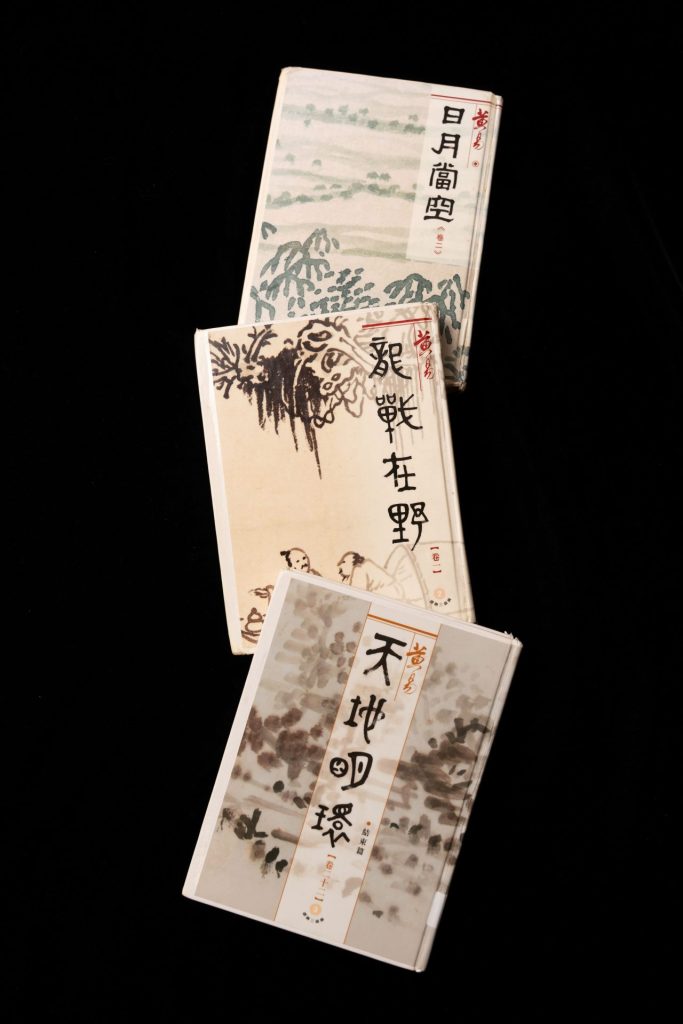 黃易
日月當空
《卷二》
黃易
龍戰在野
【卷一】
黃易
天地明環
•結束篇
【卷二十二】